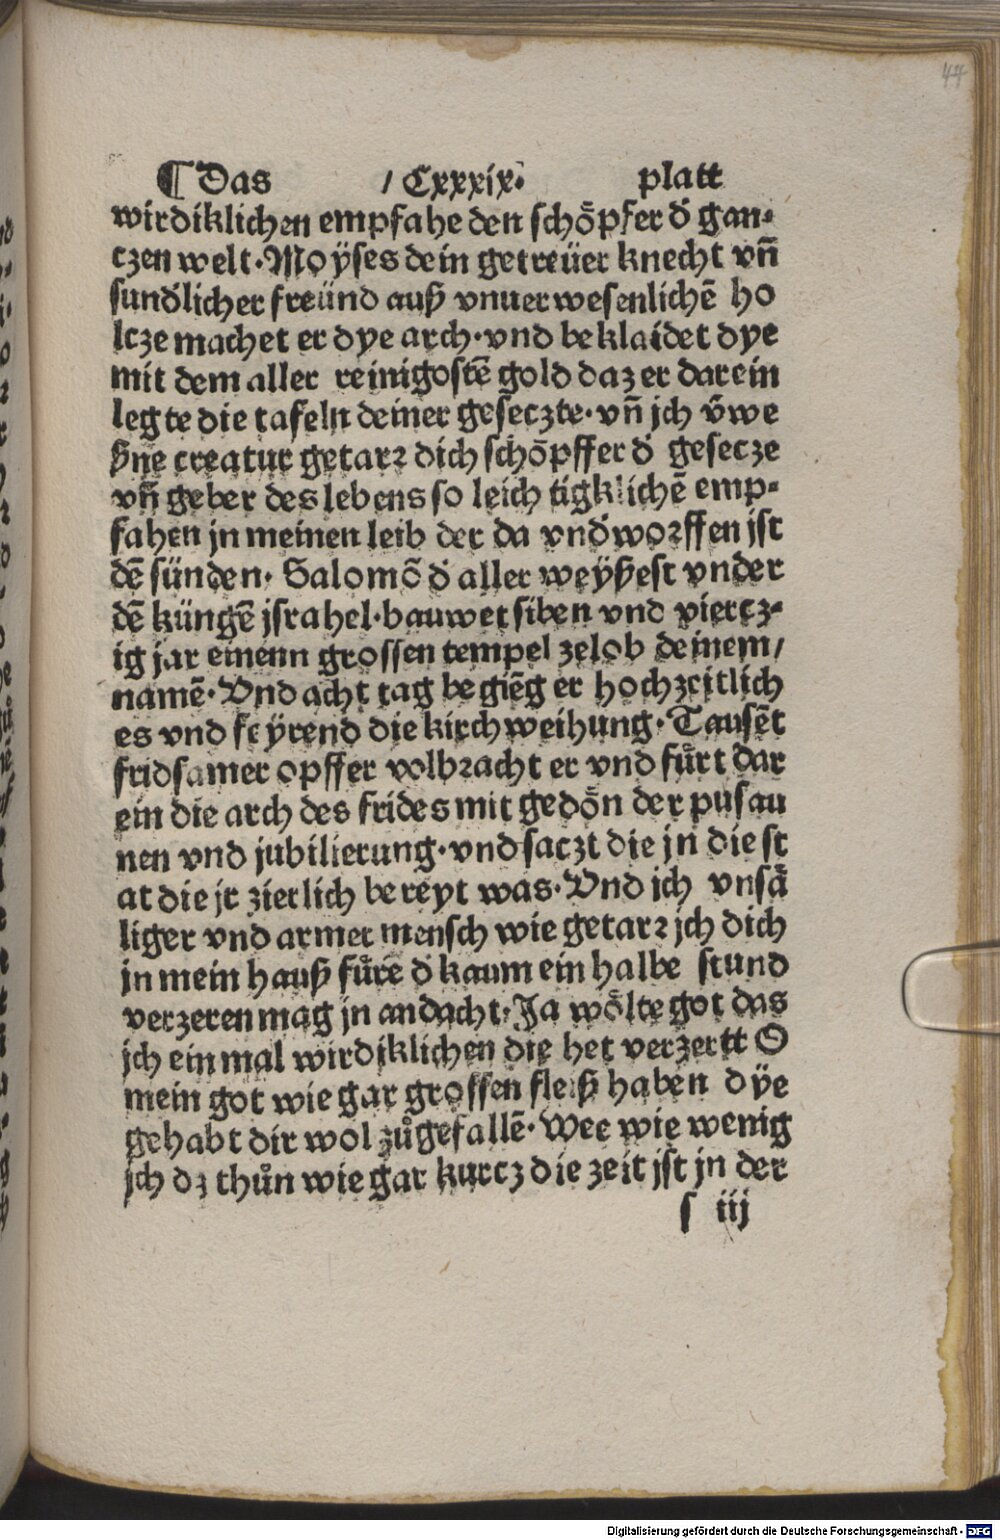 44
¶ Das / Cxxxix. platt
wirdiklichen empfahe den schöpfer d̕ gan-
czen welt. Moÿses dein getreüer knecht vn̄
sund̕licher freünd auß vnuerwesenlichē ho
lcze machet er dye arch. vnd beklaidet dye
mit dem aller reinigostē gold daz er darein
legte die tafeln deiner geseczte. vn̄ jch v̄we
ßne creatur getarꝛ dich schöpffer d̕ gesecze
vn̄ geber des lebens so leichtigklichē emp-
fahen jn meinen leib der da vnd̕woꝛffen jst
dē sünden. Salomō d̕ aller weÿßest vnder
dē küngē jsrahel. bauwet siben vnd viercz-
ig jar einenn grossen tempel zelob deinem /
namē. Vnd acht tag begiēg er hochzeitlich
es vnd feÿrend die kirchweihung. Tausēt
fridsamer opffer volbꝛacht er vnd fuͤrt dar
ein die arch des frides mit gedön der pusau
nen vnd jubilierung. vnd saczt die jn die st
at die jr zierlich bereyt was. Vnd ich vnsä
liger vnd armer mensch wie getarꝛ jch dich
jn mein hauß fuͤrē d̕ kaum ein halbe stund
verzeren mag jn andacht. Ja wölte got das
jch ein mal wirdiklichen die het verzertt O
mein got wie gar grossen fleiß haben dÿe
gehabt dir wol zuͦgefallē. Wee wie wenig
jch dz thuͦn wie gar kurcz die zeit jst jn der
s iij
Digitalisierung gefördert durch die Deutsche Forschungsgemeinschaft - DFG